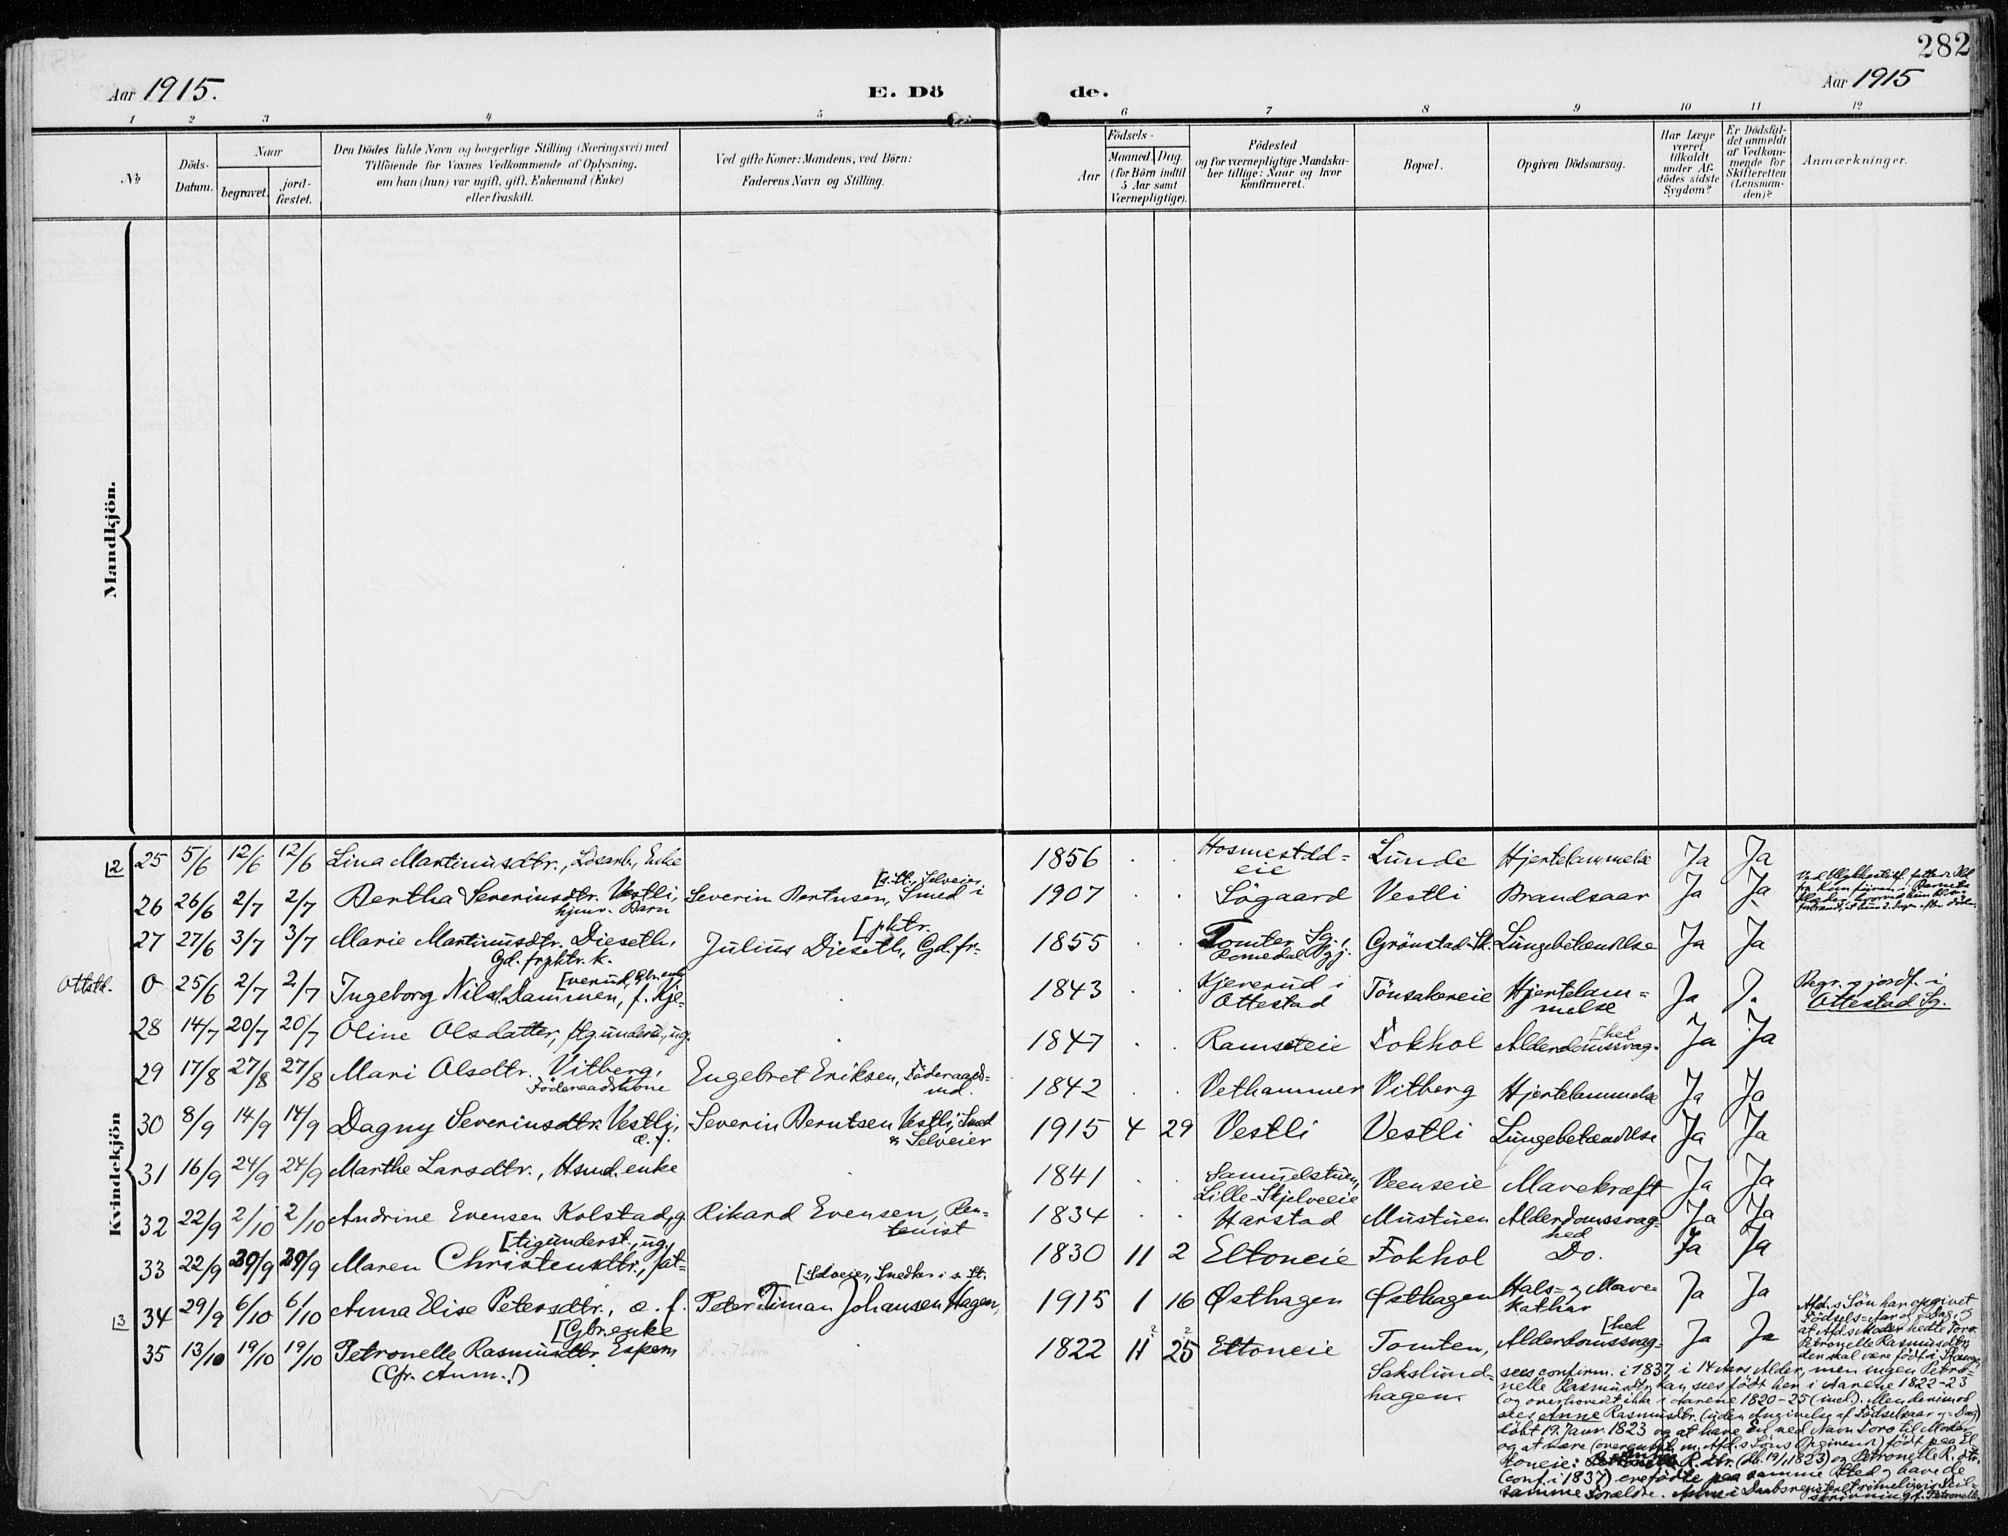 282
Aar 1915.
E. Dö
de.
Aar 1915
1 2 3 4 5 6 7 8 9 10 11 12
№
Döds-
Datum.
Naar
begravet.
jord-
fæstet.
Den Dödes fulde Navn og borgerlige Stilling (Næringsvei) med
Tilföiende for Voxnes Vedkommende af Oplysning,
om han (hun) var ugift, gift, Enkemand (Enke)
eller fraskilt.
Ved gifte Koner: Mandens, ved Börn:
Faderens Navn og Stilling.
Födsels-
Aar
Maaned. Dag
(for Börn indtil
5 Aar samt
Værnepligtige).
Födested
og for værnepligtige Mandska-
ber tillige: Naar og hvor
konfirmeret.
Bopæl.
Opgiven Dödsaarsag.
Har Læge
været
tilkaldt
under Af-
dödes sidste
Sygdom?
Er Dödsfal-
det anmeldt
af Vedkom-
mende for
Skifteretten
(Lensman-
den)?
Anmærkninger.
Mandkjön.
Kvindekjön
[2 25 5/6 12/6 12/6 Lina Martinusdtr., Lösarb., Enke 1856 . . Hosmestad-
eie Lunde Hjertelammelse Ja Ja
26 26/6 2/7 2/7 Bertha Severinsdtr. Vestli,
hjmv. Barn Severin Berntsen, Smed i
[s. St., Selveier 1907 . . Sögaard Vestli Brandsaar Ja Ja
27 27/6 3/7 3/7 Marie Martinusdtr. Dieseth,
Gd. frpktr. k. Julius Dieseth, Gd. fr-
[pktr. 1855 . . Tomter Sg. i
Romedal Pgj. Grönstad St. Lungebetændelse Ja Ja
Ottstd. 0 25/6 2/7 2/7 Ingeborg Nilsd. Dammen, f. Kje-
[verud, Gbr. enke . 1843 . . Kjeverud i
Ottestad Tönsakereie Hjertelam-
melse Ja J. Begr. og jordf. i
Ottestad Sg.
28 14/7 20/7 20/7 Oline Olsdatter, ftg. underst., ug. . 1847 . . Ramseteie Fokhol Alderdomssvag-
[hed Ja Ja
29 17/8 27/8 27/8 Mari Olsdtr. Vitberg,
Föderaadskone Engebret Eriksen, Föderaads-
md. 1842 . . Vethammer Vitberg Hjertelammelse Ja Ja
30 8/9 14/9 14/9 Dagny Severinsdtr. Vestli,
æ. f. Severin Berntsen Vestli, Smed
& Selveier 1915 4 29 Vestli Vestli Lungebetændelse Ja Ja
31 16/9 24/9 24/9 Marthe Larsdtr., Hsmd. enke . 1841 . . Samuelstuen,
Lille-Skjelveeie Veenseie Mavekræft Ja Ja
32 22/9 2/10 2/10 Andrine Evensen Kolstad, g. Rikard Evensen, Ren-
tenist 1834 . . Harstad Mustuen Alderdomssvag-
hed Ja Ja
33 22/9 30/9 30/9 Maren Christensdtr., fat-
[tigunderst., ug. 1830 11 2 Eltoneie Fokhol Do. Ja Ja
34 29/9 6/10 6/10 Anna Elise Petersdtr., æ. f. Peter Timan Johansen Hagen,
[Selveier, Snedker i s. St. 1915 1 16 Østhagen Østhagen Hals- og Mave-
kathar Ja Ja
[3 35 13/10 19/10 19/10 Petronelle Rasmusdtr. Espern
[Gbr. enke
(Cfr. Anm.!) 1822 11 25 Eltoneie Tomten,
Sakslund-
hagen Alderdomssvag-
[hed Ja Ja
Afd.s Sön har opgivet
Födsels-Aar og -Dag, og
at Afd.s Moder hedte Toro.
Petronelle Rasmusdtr.,
sees confirm. i 1837, i 14 Aars Alder, men ingen Petro-
nelle Rasmusdtr. kan sees født her i Aarene 1822-23
(og overhovedt ikke i Aarene 1820-25 (incl.). Men derimod
sees Anne Rasmusdtr. (uden Angivelse af Födselsaar og -Dag)
döbt 19. Janr. 1823 og at have En ved Navn Toro til Moder
og at være (overensst. m. Afd.s Söns Opgivende) född paa El-
toneie: R. dtr. (db. 19/1 1823) og Petronelle R. dtr.
(conf. i 1837) ere födte paa samme Sted og have de
samme Forældre.